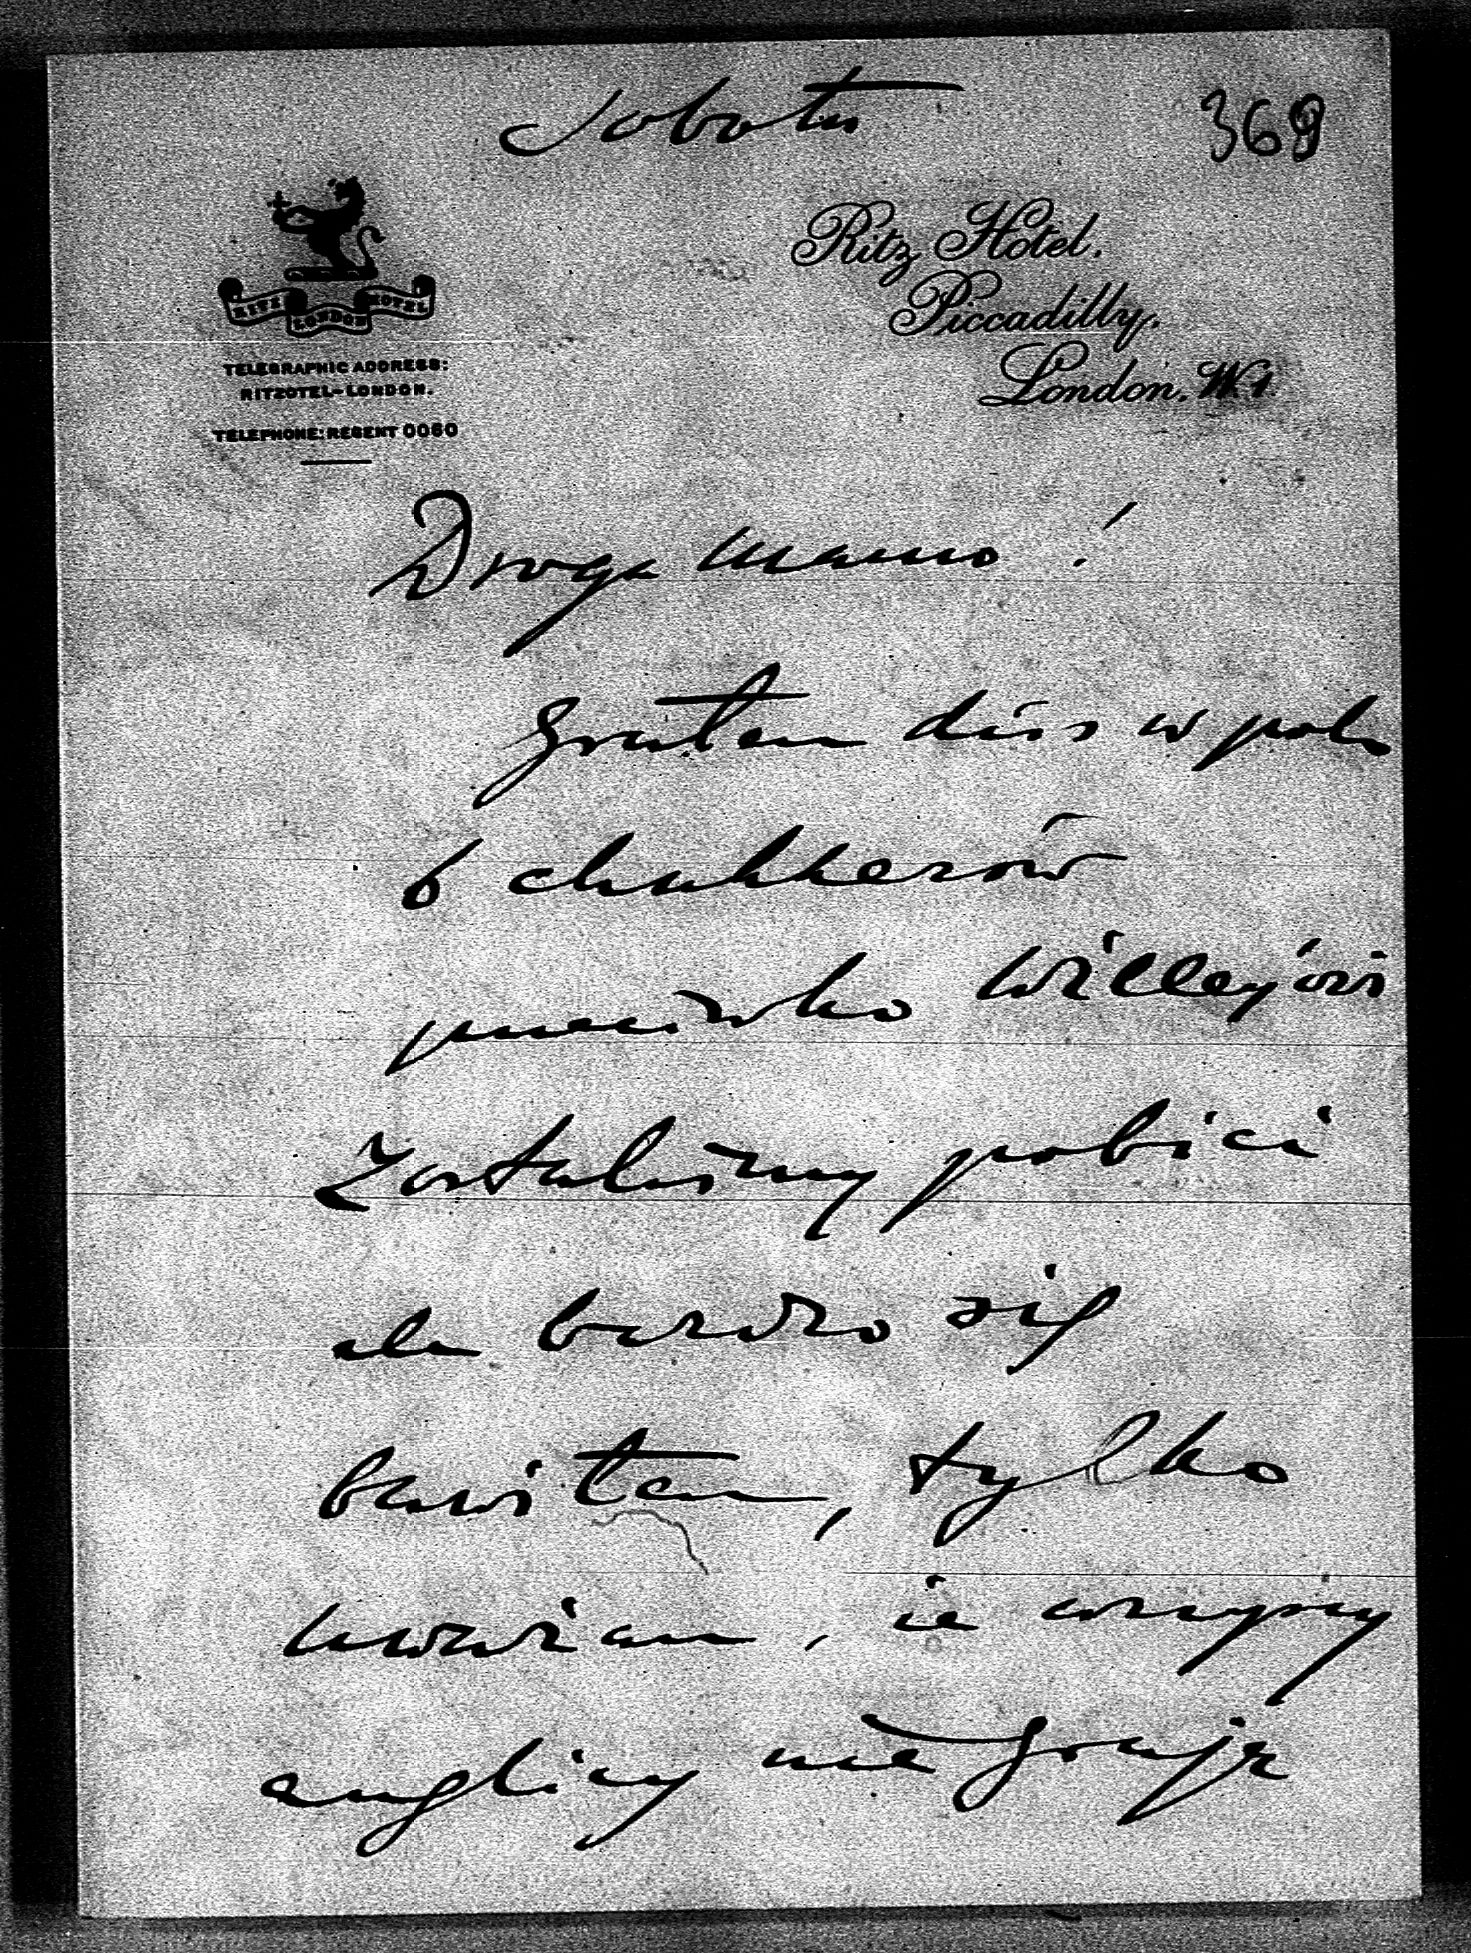 Sobota
369
RITZ HOTEL
LONDON
TELEGRAPHIC ADDRESS:
RITZOTEL-LONDON.
TELEPHONE: REGENT 0060
Ritz Hotel.
Piccadilly.
London. W.1.
Droga Mamo!
Grałem dziś w polo
6 chukkerów
przeciwko
zostaliśmy pobici
ale bardzo się
bawiłem, tylko
uważam, że wszyscy
anglicy nie grają